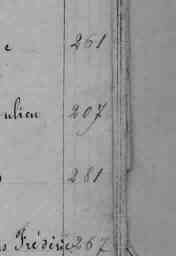 e 261
ulien 207
281
s Frédéric 267